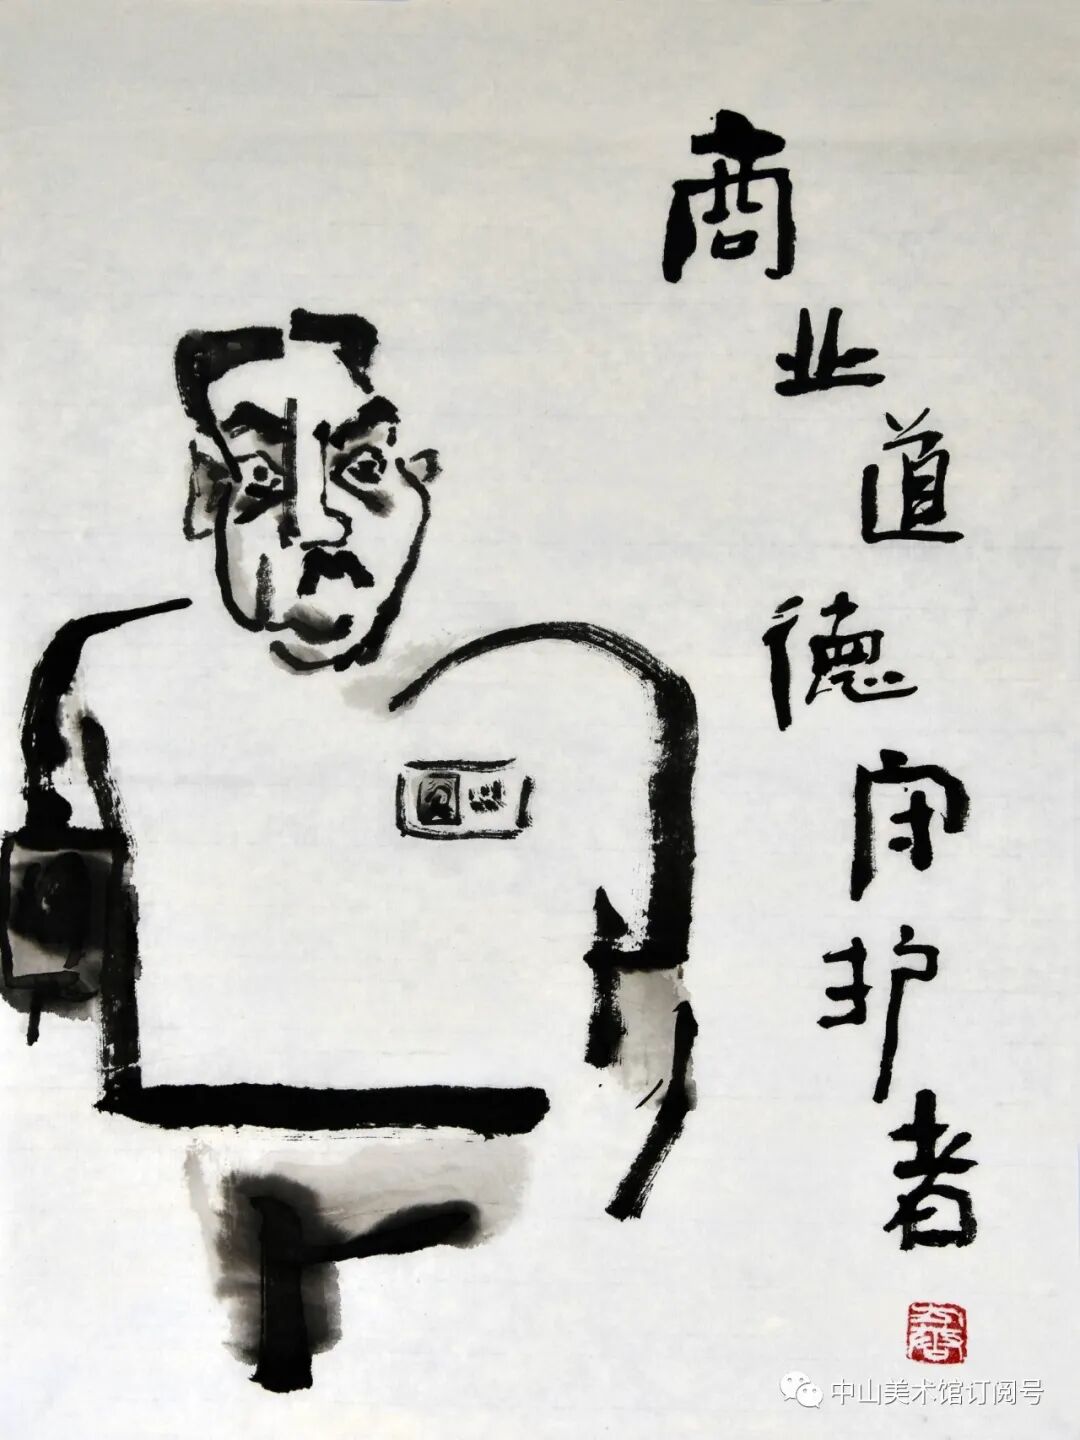 商业道德守护者
中山美术馆订阅号